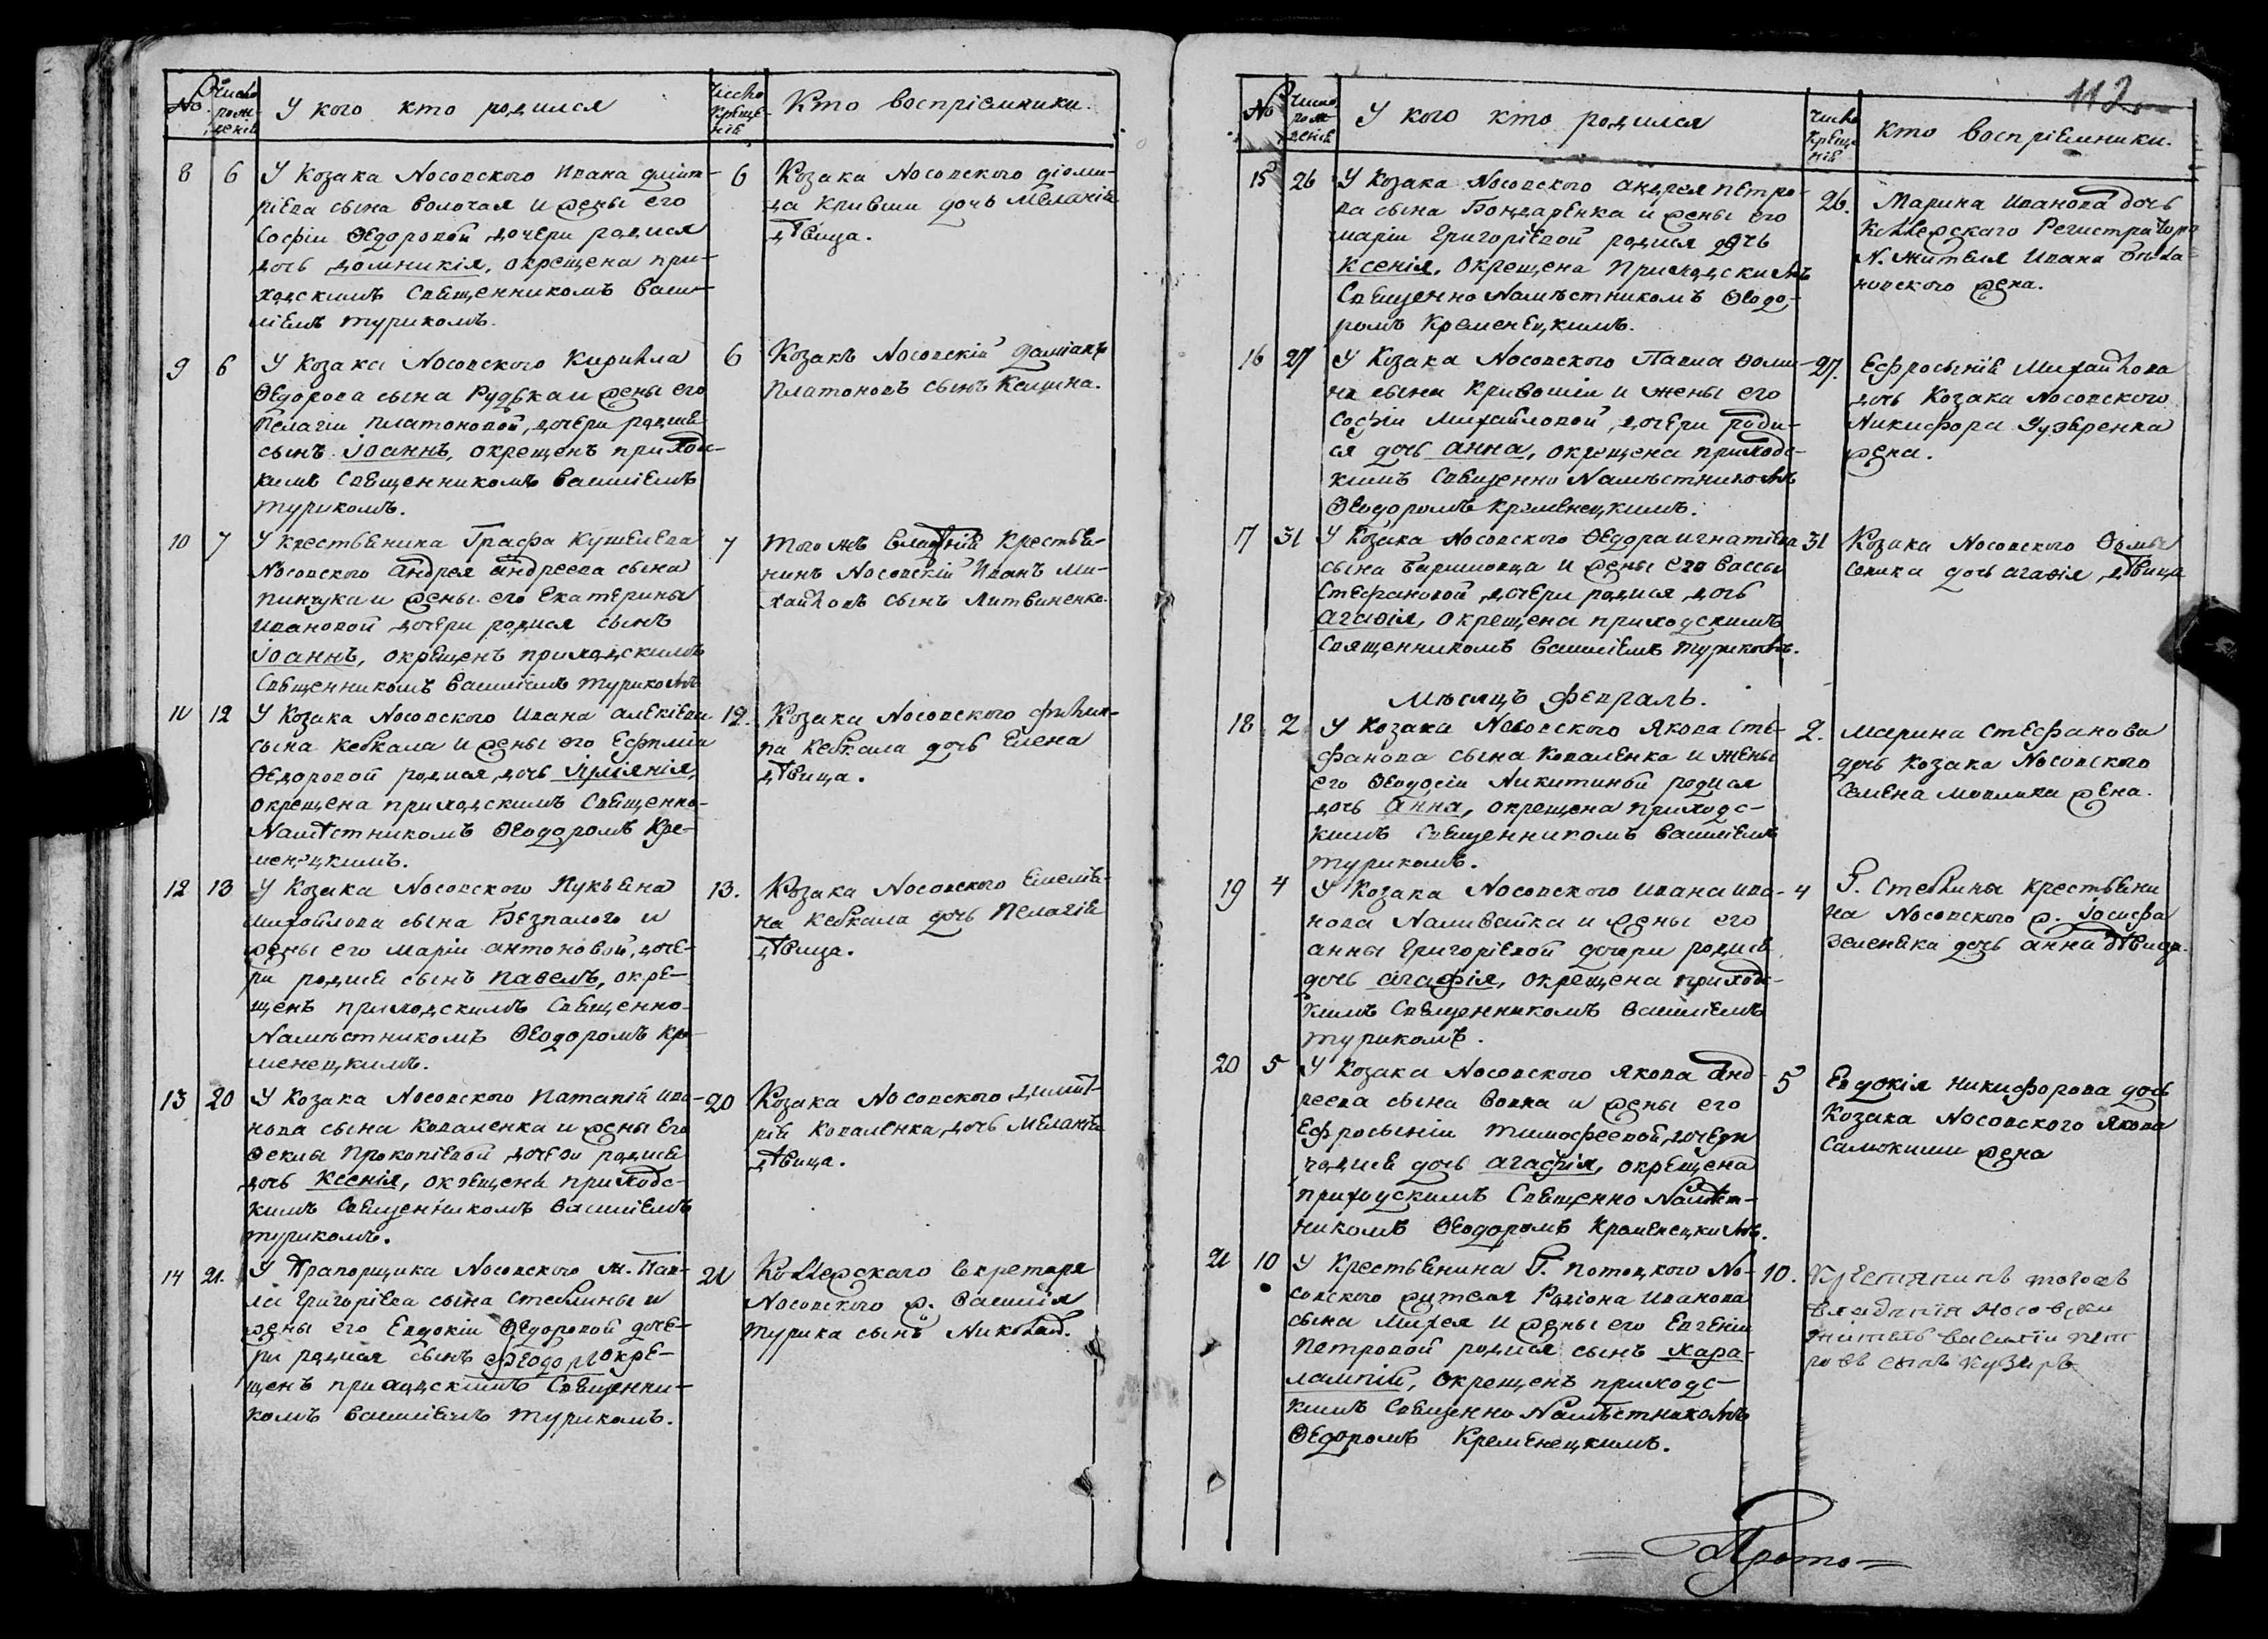 №
Число рож-
денія
У кого кто родился
Число
креще-
нія
Кто воспріемники.
8
6
У козака Носовского Ивана Дмит-
ріева сына Волочая и жены его
Софіи Ѳедоровой дочери родися
дочь Домникія, окрещена при-
ходскимъ Священникомъ Васи-
ліемъ Турикомъ.
6
Козака Носовского Діоми-
да Кривши дочь Меланія
дѣвица.
9
6
У Козака Носовского Кирилла
Ѳедорова сына Рудька и жены его
Пелагіи Платоновой, дочери родися
сынъ Іоаннъ, окрещенъ приходс-
кимъ Священникомъ Василіемъ
Турикомъ.
6
Козакъ Носовскій Даміанъ
Платоновъ сынъ Кацина.
10
7
У крестьянина Графа Кушелева
Носовского Андрея Андреева сына
Пинчука и жены его Екатерины
Ивановой дочери родися сынъ
Іоаннъ, окрещенъ приходскимъ
Священникомъ Василіемъ Турикомъ
7
Того жъ владѣнія крестья-
нинъ Носовскій Иванъ Ми-
хайловъ сынъ Литвиненко.
11
12
У Козака Носовского Ивана Алексіева
сына Кевкала и жены его Ефиміи
Ѳедоровой родися дочь Іуліянія,
окрещена приходскимъ Священно-
Намѣстникомъ Ѳеодоромъ Кре-
менецкимъ.
12.
Козака Носовского Филип-
па Кевкала дочь Елена
дѣвица.
12
13
У Козака Носовского Лукъяна
Михайлова сына Безпалого и
жены его Маріи Антоновой, доче-
ри родися сынъ Павелъ, окре-
щенъ приходскимъ Священно-
Намѣстникомъ Ѳеодоромъ Кре-
менецкимъ.
13.
Козака Носовского Емелья-
на Кевкала дочь Пелагія
дѣвица.
13
20
У Козака Носовского Патапій Ива-
нова сына Коваленка и жены его
Ѳеклы Прокопіевой дочери родися
дочь Ксенія, окрещена приходс-
кимъ Священникомъ Василіемъ
Турикомъ.
20
Козака Носовского Димит-
рія Коваленка, дочь Меланія
дѣвица.
14
21.
У Прапорщика Носовского ж. Пав-
ла Григоріева сына Стеблины и
жены его Евдокіи Ѳедоровой доче-
ри родися сынъ Ѳеодоръ окре-
щенъ приходскимъ Священни-
комъ Василіемъ Турикомъ.
21
Коллежскаго Секретаря
Носовского ж. Василія
Турика сынъ Николай.
112
№
Число
рож-
денія
У кого кто родился
Число
креще-
нія
Кто воспріемники.
15
26
У Козака Носовского Андрея Петро-
ва сына Бондаренка и жены его
Маріи Григоріевой родися дочь
Ксенія, окрещена Приходскимъ
Священно Намѣстникомъ Ѳеодо-
ромъ Кременецкимъ.
26.
Марина Иванова дочь
Коллежскаго Регистратора
Н. жителя Ивана
жена.
16
27
У Козака Носовского Павла Ѳоми-
на сына Кривошіи и жены его
Софіи Михайловой, дочери роди-
ся дочь Анна, окрещена приходс-
кимъ Священно Намѣстникомъ
Ѳеодоромъ Кременецкимъ.
27.
Ефросынія Михайлова
дочь Козака Носовского
Никифора
жена.
17
31
У Козака Носовского Ѳедора Игнатіева
сына Баришовца и жены его Вассы
Стефановой дочери родися дочь
Агафія, окрещена приходскимъ
Священникомъ Василіемъ Турикомъ.
31
Козака Носовского Ѳомы
дочь Агафія, дѣвица
Мѣсяцъ Февраль.
18
2
У Козака Носовского Якова Сте-
фанова сына Коваленка и жены
его Ѳеодосіи Никитиной родися
дочь Анна, окрещена Приходс-
кимъ Священникомъ Василіемъ
Турикомъ.
2.
Марина Стефанова
дочь Козака Носовского
Семена жена.
19
4
У Козака Носовского Ивана Ива-
нова Наливайка и жены его
Анны Григоріевой дочери родися
дочь Агафія, окрещена приходс-
кимъ Священникомъ Василіемъ
Турикомъ.
4
Г. Стеблины крестьяни-
на Носовского ж. Іосифа
Зеленька дочь Анна дѣвица.
20
5
У Козака Носовского Якова Анд-
реева сына Вовка и жены его
Ефросыніи Тимофеевой, дочери
родися дочь Агафія, окрещена
приходскимъ Священно Намѣст-
никомъ Ѳеодоромъ Кременецкимъ.
5
Евдокія Никифорова дочь
Козака Носовского Якова
жена
21
10
У Крестьянина Г. Потоцкого Но-
совского жителя Родіона Иванова
сына Михея и жены его Евгеніи
Петровой родися сынъ Хара-
лампій, окрещенъ приходс-
кимъ Священно Намѣстникомъ
Ѳедоромъ Кременецкимъ.
10.
Крестянинъ тогожъ
владѣнія Носовски
житель Василій Пет
ровъ сынъ Кузиръ
Прото